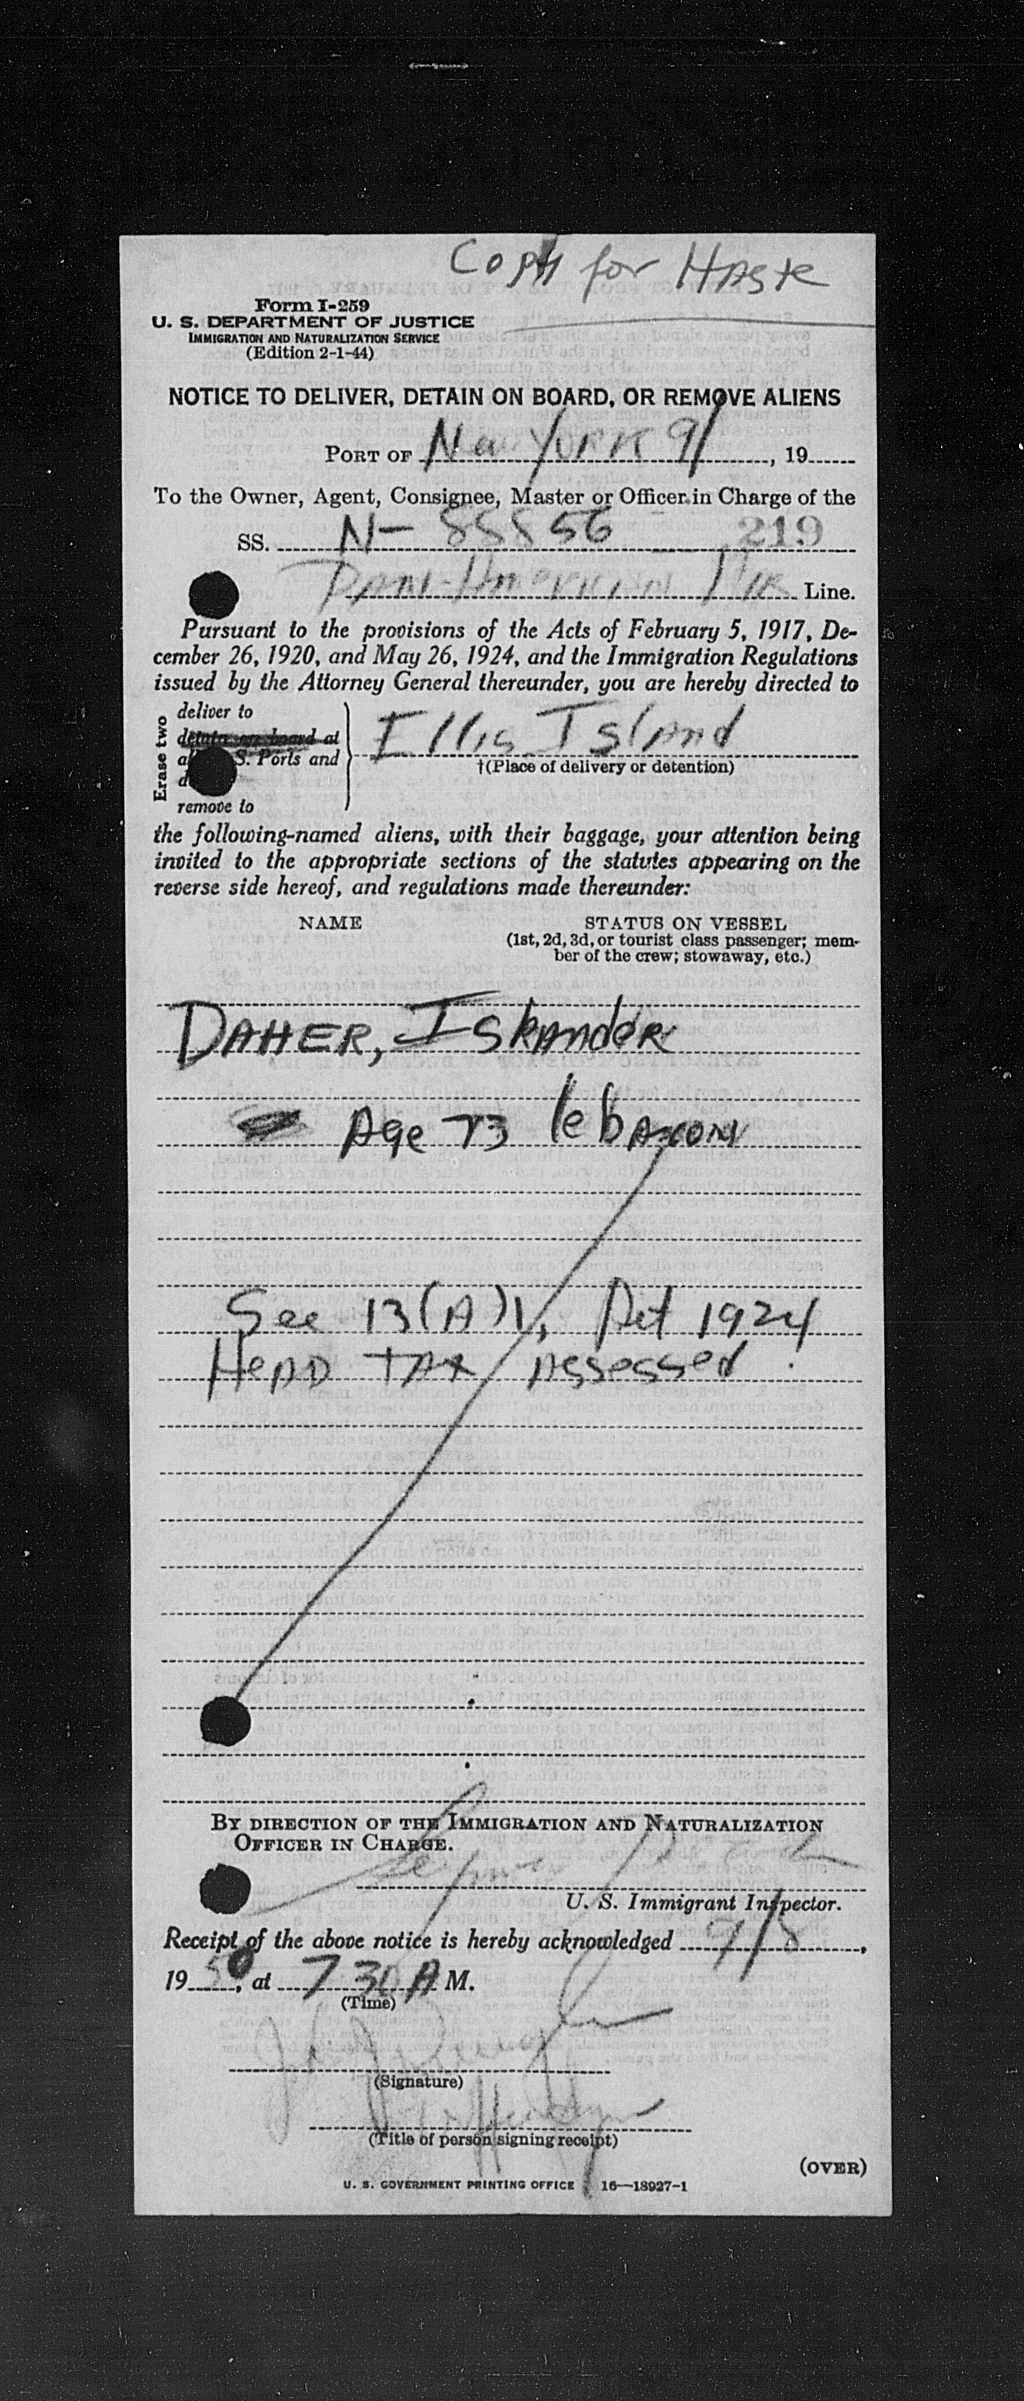 Copy for HASTE
Form I-259
U. S. DEPARTMENT OF JUSTICE
IMMIGRATION AND NATURALIZATION SERVICE
(Edition 2-1-44)
NOTICE TO DELIVER, DETAIN ON BOARD, OR REMOVE ALIENS
PORT OF New YORK 9/ , 19
To the Owner, Agent, Consignee, Master or Officer in Charge of the
SS. N- 88856 219
PAN-AmericAN Air Line.
Pursuant to the provisions of the Acts of February 5, 1917, De-
cember 26, 1920, and May 26, 1924, and the Immigration Regulations
issued by the Attorney General thereunder, you are hereby directed to
Erase two
deliver to
detain on board at
S. Ports and
remove to
Ellis Island
†(Place of delivery or detention)
the following-named aliens, with their baggage, your attention being
invited to the appropriate sections of the statutes appearing on the
reverse side hereof, and regulations made thereunder:
NAME STATUS ON VESSEL
(1st, 2d, 3d, or tourist class passenger; mem-
ber of the crew; stowaway, etc.)
DAHER, IskandeR
Age 73
See 13(A)1, Act 1924
HeAD TAx Assessed !
BY DIRECTION OF THE IMMIGRATION AND NATURALIZATION
OFFICER IN CHARGE.
U. S. Immigrant Inspector.
Receipt of the above notice is hereby acknowledged 9/8,
1950, at 7 30 A M.
(Time)
(Signature)
(Title of person signing receipt)
(OVER)
U. S. GOVERNMENT PRINTING OFFICE 16—18927-1